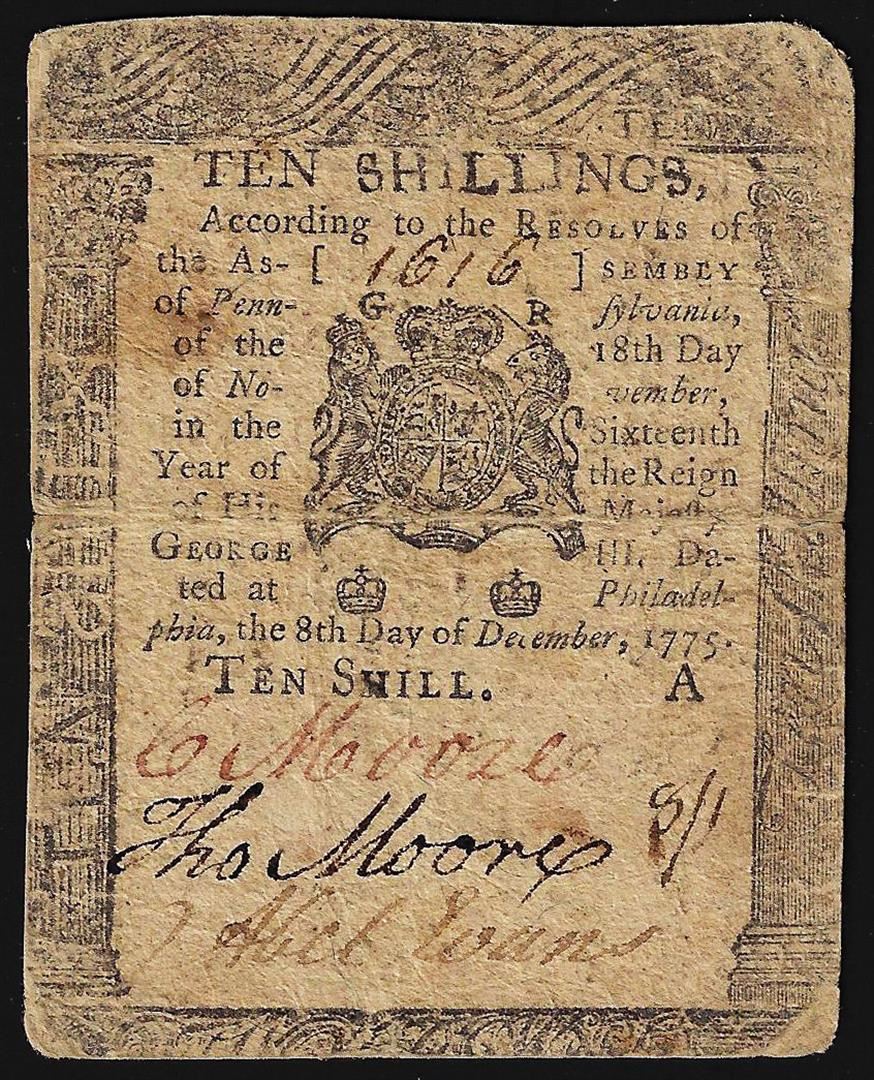 TEN SHILLINGS,
According to the RESOLVES of
the As- [ 1616 ] SEMBLY
of Penn- G R sylvania,
of the 18th Day
of No- vember,
in the Sixteenth
Year of the Reign
of His Majesty
GEORGE III. Da-
ted at Philadel-
phia, the 8th Day of December, 1775.
TEN SHILL. A
C Moore
Tho Moore
Abel Evans